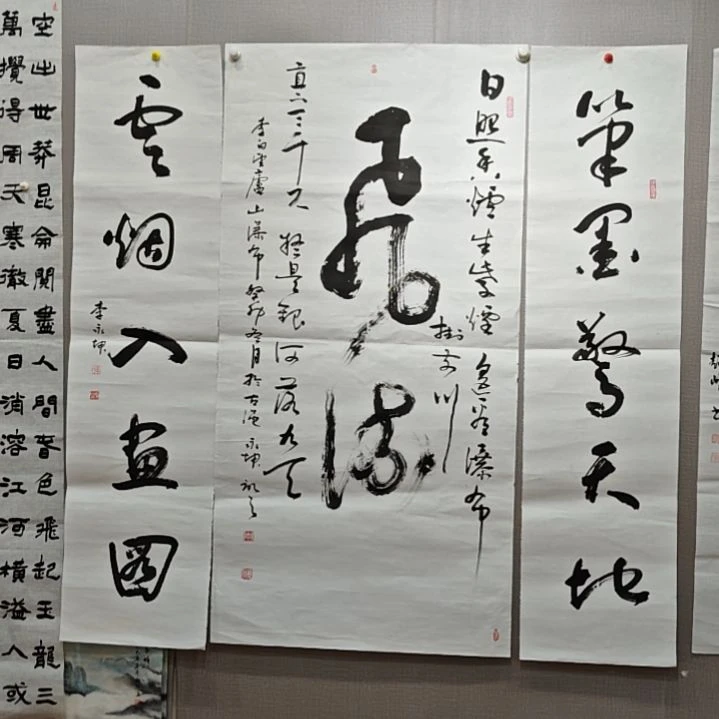 筆墨驚天地
日照香爐生紫煙 遙看瀑布
掛前川
飛流
直下三千尺 疑是銀河落九天
李白望廬山瀑布 癸卯冬月於古 永坤
雲烟入畫圖
李永坤
空出世莽昆侖閱盡人間春色飛起玉龍三
萬攪得周天寒徹夏日消溶江河橫溢人或